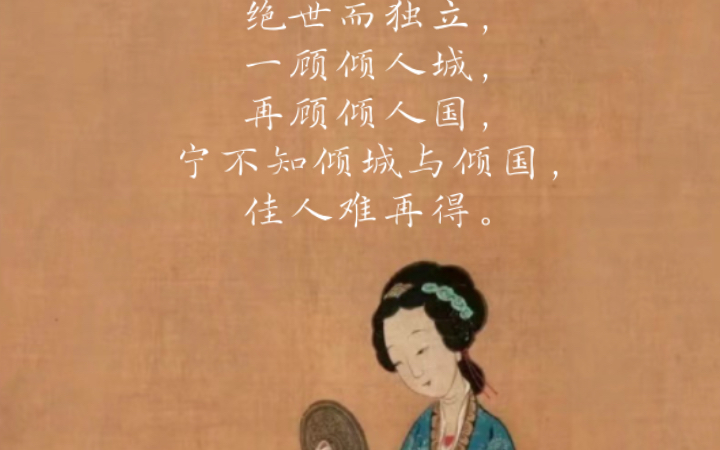 绝世而独立，
一顾倾人城，
再顾倾人国，
宁不知倾城与倾国，
佳人难再得。